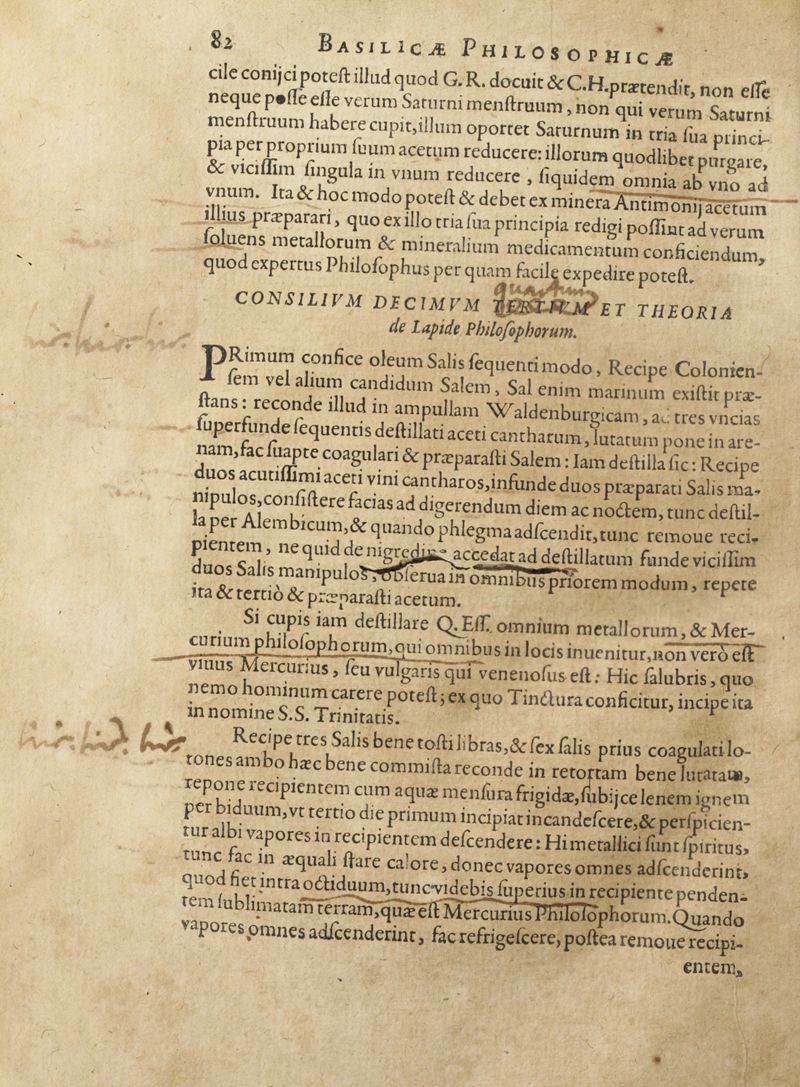 82 BASILICÆ PHILOSOPHICÆ
cile conijci potest illud quod G. R. docuit & C.H. prætendit, non esse
neque posse esse verum Saturni menstruum, non qui verum Saturni
menstruum habere cupit, illum oportet Saturnum in tria sua princi-
pia per proprium suum acetum reducere: illorum quodlibet purgare,
& vicissim singula in vnum reducere, siquidem omnia ab vno ad
vnum. Ita & hoc modo potest & debet ex minera Antimonij acetum
illius præparari, quo ex illo tria sua principia redigi possint ad verum
soluens metallorum & mineralium medicamentum conficiendum,
quod expertus Philosophus per quam facile expedire potest.
quartum
CONSILIVM DECIMVM TERTIVM ET THEORIA
de Lapide Philosophorum.
PRimum confice oleum Salis sequenti modo, Recipe Colonien-
sem vel alium candidum Salem, Sal enim marinum existit præ-
stans: reconde illud in ampullam Waldenburgicam, ac tres vncias
superfunde sequentis destillati aceti cantharum, lutatum pone in are-
nam, fac suapte coagulari & præparasti Salem: Iam destilla sic: Recipe
duos acutissimi aceti vini cantharos, infunde duos præparati Salis ma-
nipulos, consistere facias ad digerendum diem ac noctem, tunc destil-
la per Alembicum, & quando phlegma adscendit, tunc remoue reci-
pientem, ne quid de accedat ad destillatum funde vicissim
duos Salis manipulos, obserua in omnibus priorem modum, repete
ita & tertiò & præparasti acetum.
Si cupis iam destillare Q. Ess. omnium metallorum, & Mer-
curium philosophorum, qui omnibus in locis inuenitur, non verò est
viuus Mercurius, seu vulgaris qui venenosus est: Hic salubris, quo
nemo hominum carere potest; ex quo Tinctura conficitur, incipe ita
in nomine S.S. Trinitatis.
Recipe tres Salis bene tosti libras, & sex salis prius coagulati lo-
tones ambo hæc bene commista reconde in retortam bene lutatam,
repone recipientem cum aquæ mensura frigidæ, subijce lenem ignem
per biduum, vt tertio die primum incipiat incandescere, & perspicien-
tur albi vapores in recipientem descendere: Hi metallici sunt spiritus,
tunc fac in æquali stare calore, donec vapores omnes adscenderint,
quod fiet intra octiduum, tunc videbis superius in recipiente penden-
tem sublimatam terram, quæ est Mercurius Philosophorum. Quando
vapores omnes adscenderint, fac refrigescere, postea remoue recipi-
entem,